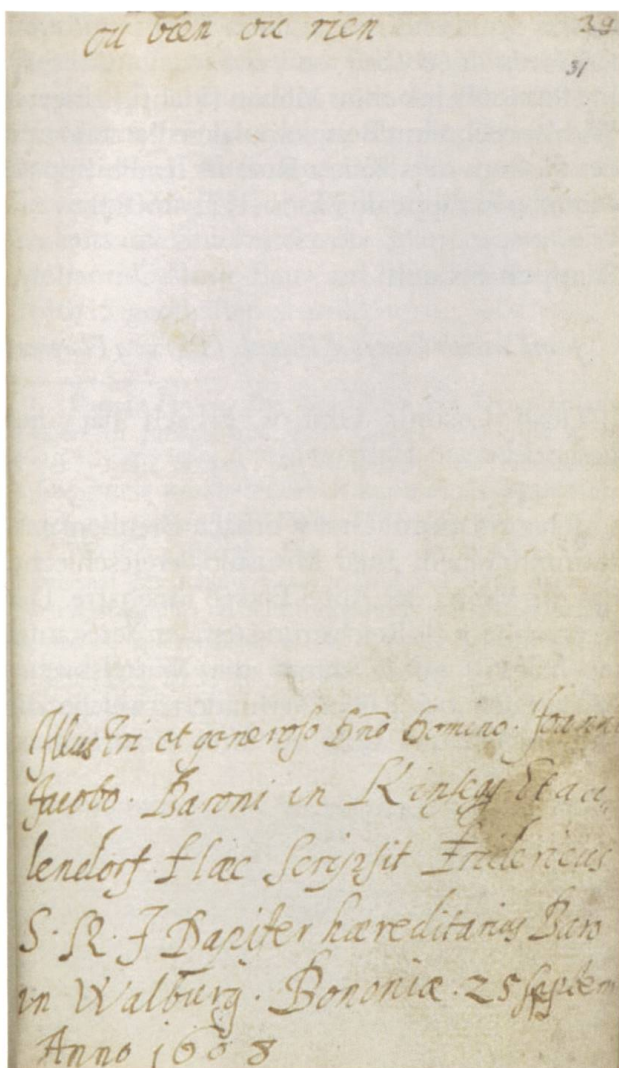 ou bien ou rien
39
31
Illustri et generoso Dno Domino. Joanni
Jacobo. Baroni in Kinsky
lendorf Hæc scripsit Fridericus
S. R. J Dapifer hæreditarius Baro
in Walburg. Bononiæ. 25 septem
Anno 1608